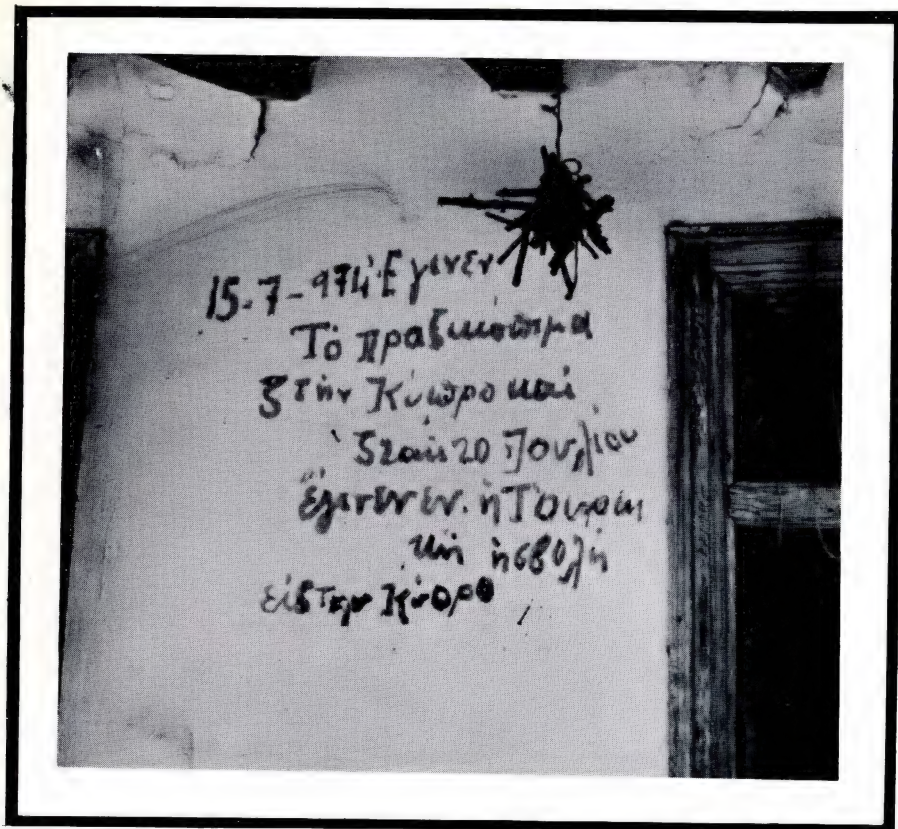 15-7-974 Ἐγινεν
Τὸ πραξικόπημα
Στὴν Κύπρο καὶ
Σταὶς 20 Ἰουλίου
ἔγινεν εν. ἡ Τουρκι
κὴ ἡσβολὴ
εἰς Την Κύπρο